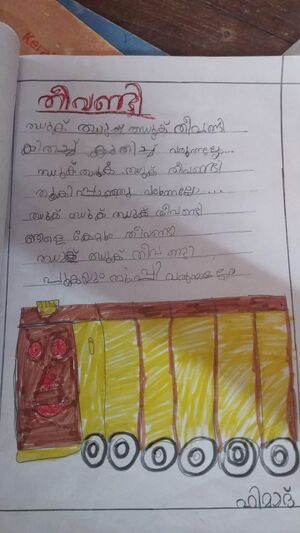 Kera
തീവണ്ടി
ഝുക് ഝുക്ക് ഝുക് തീവണ്ടി
കിതച്ച് കുതിച്ച് വരുന്നല്ലോ...
ഝുക് ഝുക് ഝുക് തീവണ്ടി
തൂകിപ്പാഞ്ഞു വരുന്നല്ലോ ...
ഝുക് ഝുക് ഝുക് തീവണ്ടി
തീവണ്ടി
ഝുക് ഝുക്
പുകയും തുപ്പി വരുന്നല്ലോ
ഹിമാദ്